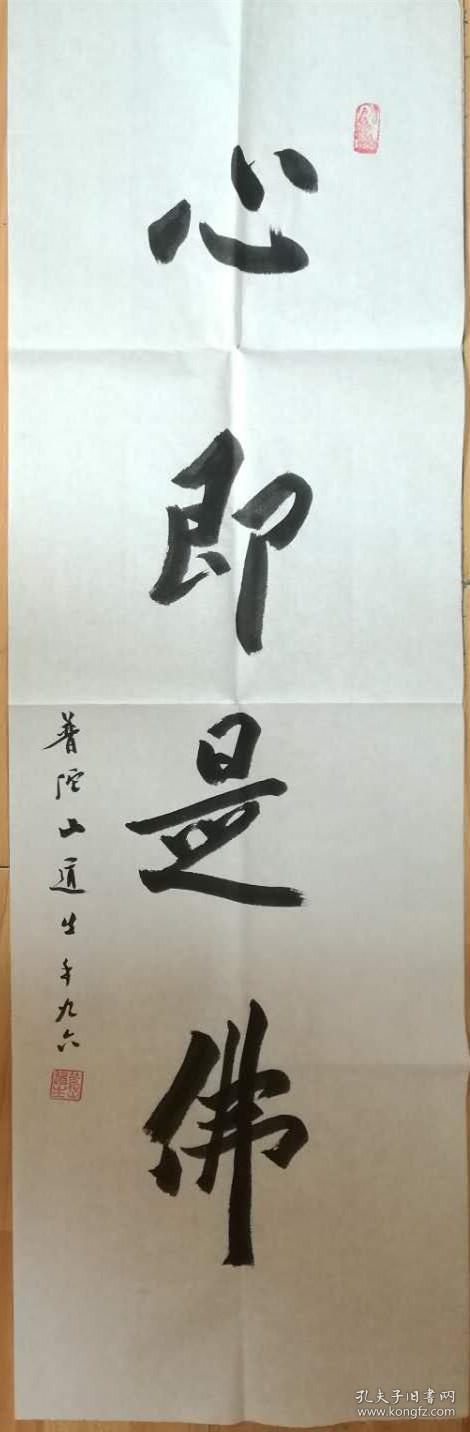 心即是佛
普陀山道生年九六
孔夫子旧书网
www.kongfz.com